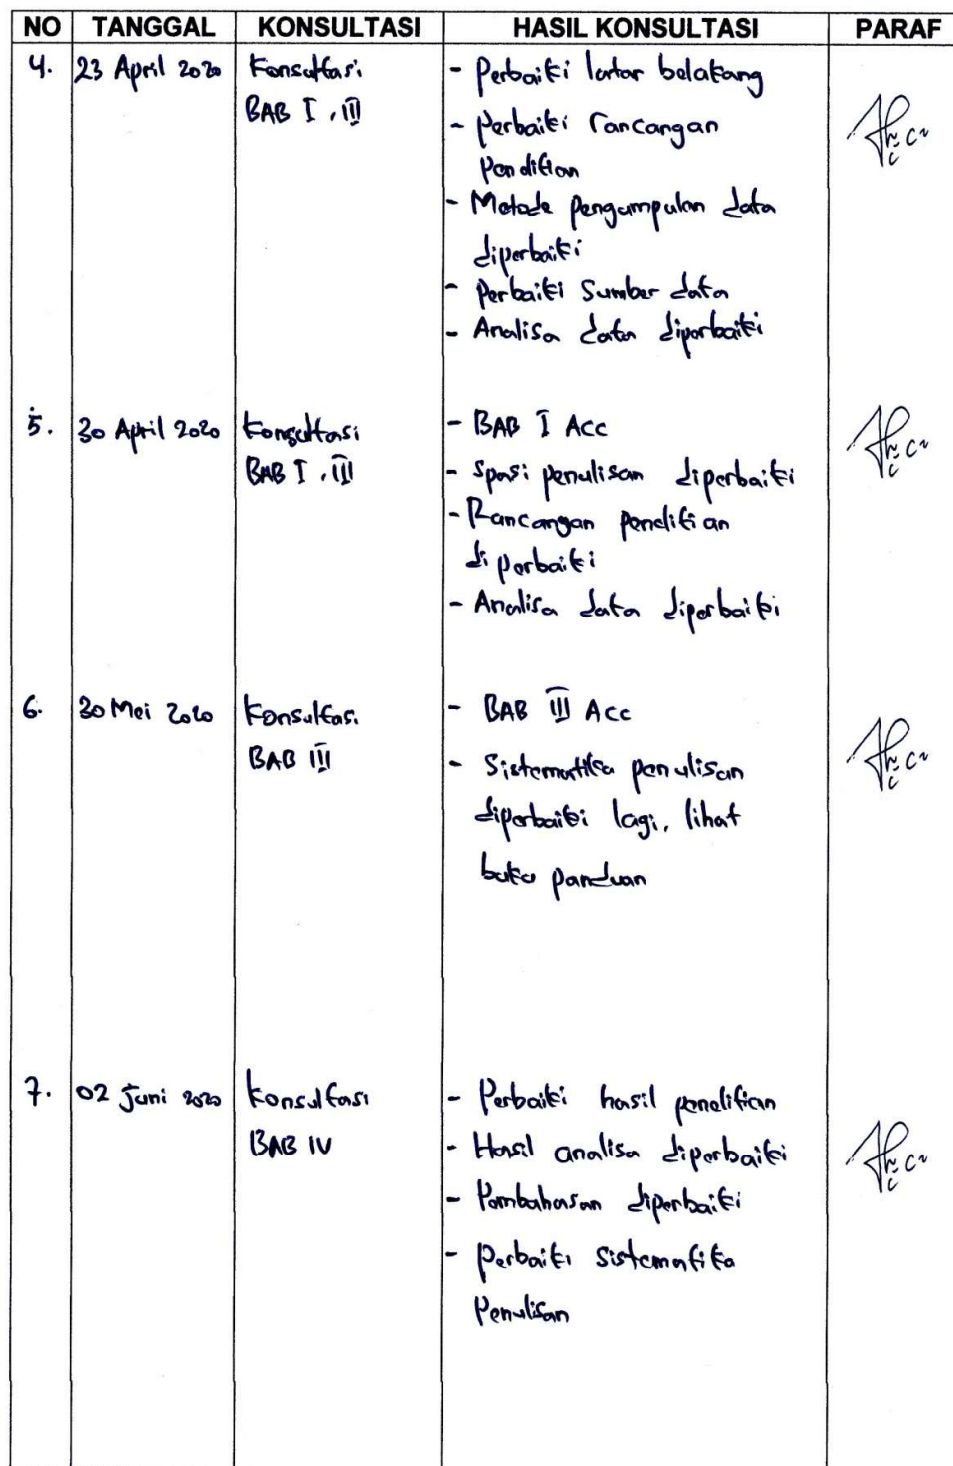 NO TANGGAL KONSULTASI HASIL KONSULTASI PARAF
4. 23 April 2020 Konsultasi - Perbaiki latar belakang
BAB I, III - Perbaiki rancangan
Penelitian
- Metode pengumpulan data
diperbaiki
- Perbaiki Sumber data
- Analisa data diperbaiki
5. 30 April 2020 Konsultasi - BAB I Acc
BAB I, III - Spasi penulisan diperbaiki
- Rancangan penelitian
diperbaiki
- Analisa data diperbaiki
6. 30 Mei 2020 Konsultasi - BAB III Acc
BAB III - Sistematika penulisan
diperbaiki lagi, lihat
buku panduan
7. 02 Juni 2020 Konsultasi - Perbaiki hasil penelitian
BAB IV - Hasil analisa diperbaiki
- Pembahasan diperbaiki
- Perbaiki sistematika
Penulisan